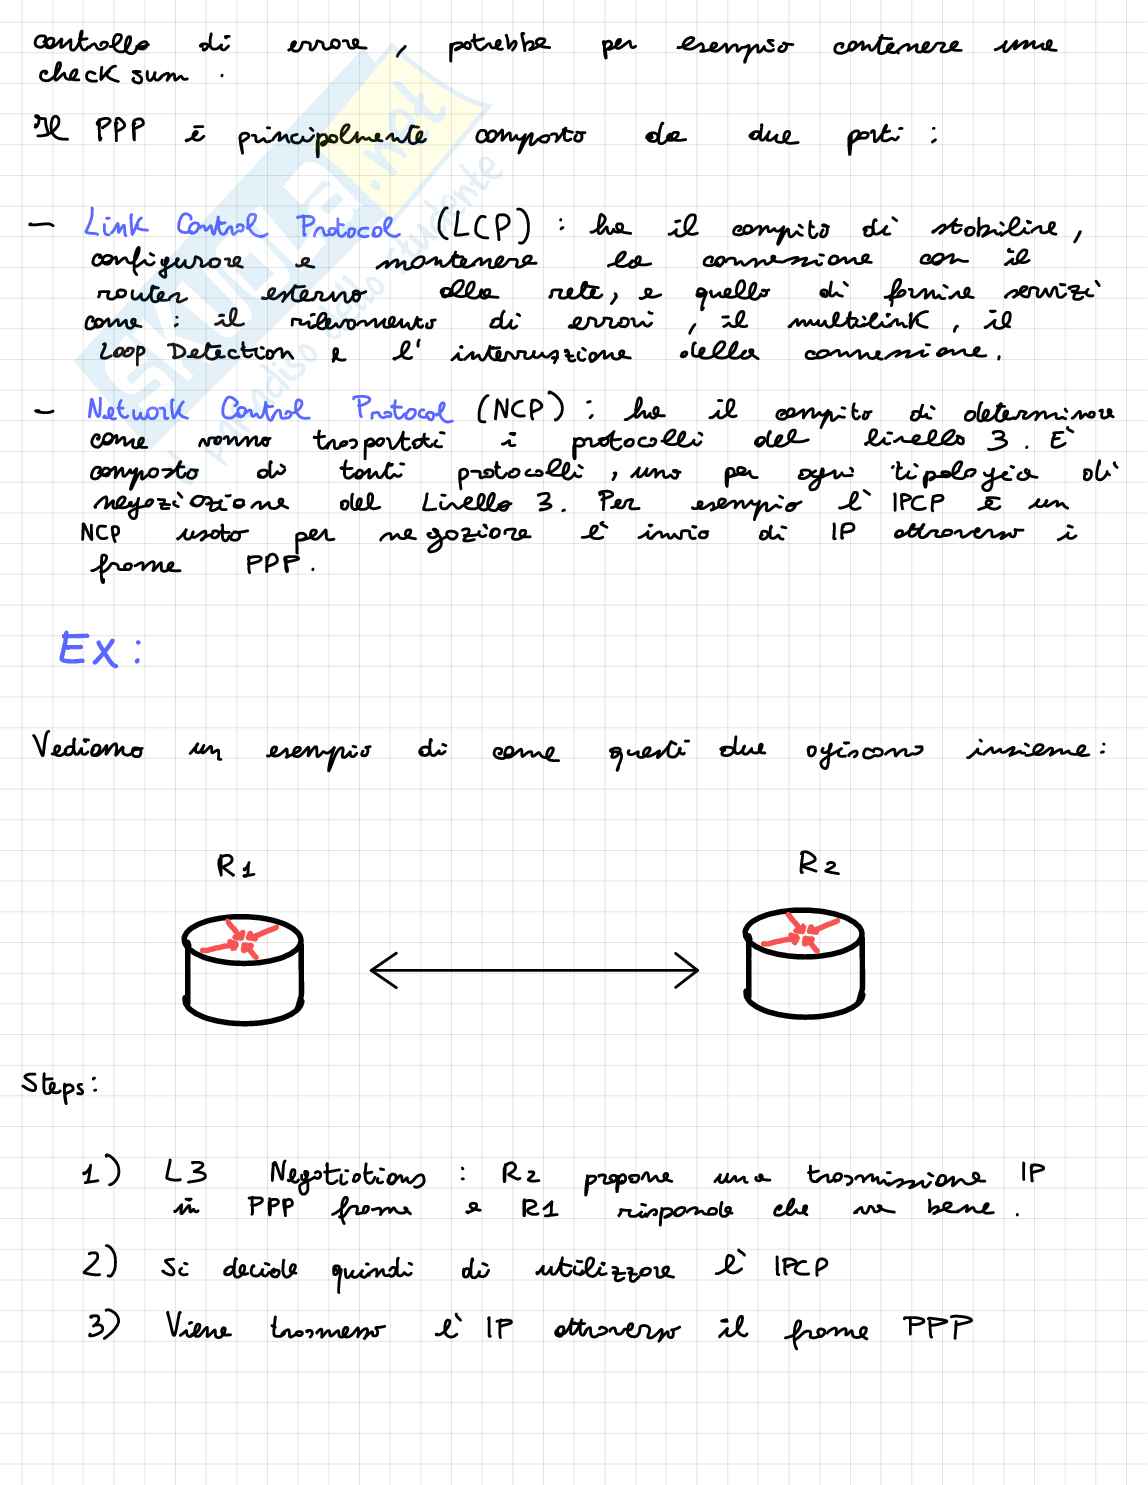 controllo di errore, potrebbe per esempio contenere una
check sum.
Il PPP è principalmente composto da due parti:
- Link Control Protocol (LCP): ha il compito di stabilire,
configurare e mantenere la connessione con il
router esterno alla rete, e quello di fornire servizi
come: il rilevamento di errori, il multilink, il
Loop Detection e l'interruzione della connessione.
- Network Control Protocol (NCP): ha il compito di determinare
come vanno trasportati i protocolli del livello 3. È
composto di tanti protocolli, uno per ogni tipologia di
negoziazione del Livello 3. Per esempio l'IPCP è un
NCP usato per negoziare l'invio di IP attraverso i
frame PPP.
Ex:
Vediamo un esempio di come questi due agiscono insieme:
R1 R2
Steps:
1) L3 Negotiations: R2 propone una trasmissione IP
in PPP frame e R1 risponde che va bene.
2) Si decide quindi di utilizzare l'IPCP
3) Viene trasmesso l'IP attraverso il frame PPP
SKUOLA.net
paradiso dello studente